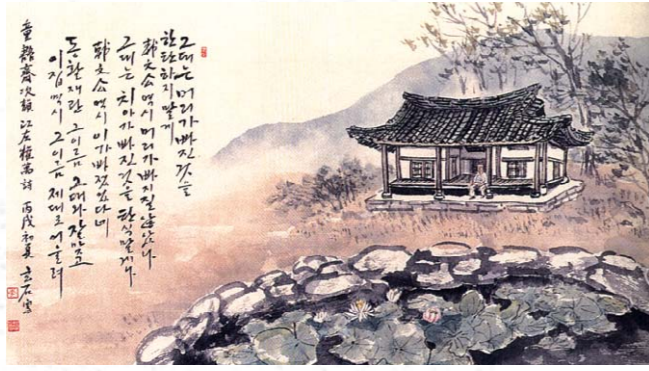 그대는 머리가 빠진 것을
한탄하지 말게
韓文公 역시 머리가 빠지질 않았나
그대는 치아가 빠진 것을 탄식 말게나
韓文公 역시 이가 빠졌었다네
동활재란 그 이름 그대와 잘 맞고
이 집 역시 그 이름 제대로 어울려
童豁齋次韻 江左權萬詩 丙戌初夏